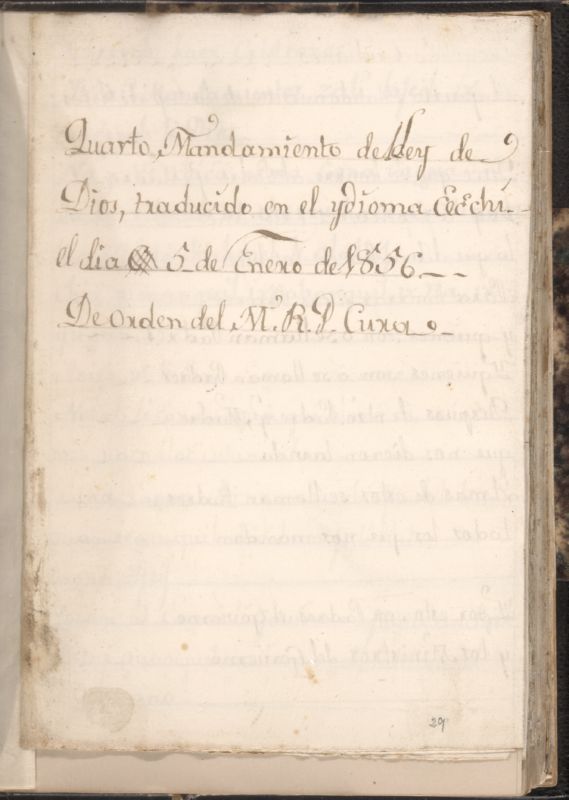 Quarto, Mandamiento de Ley de
Dios, traducido en el ydioma Cecchí.
el dia 5 de Enero de 1856
De orden del M. R. P. Cura
29